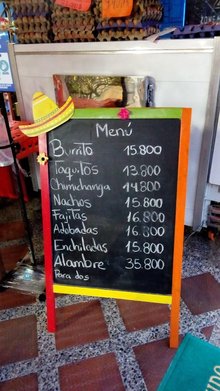 Menú
Burrito 15.800
Taquitos 13.800
Chimichanga 14.800
Nachos 15.800
Fajitas 16.800
Adobadas 16.800
Enchiladas 15.800
Alambre 35.800
Para dos